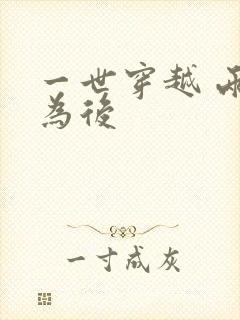 一世穿越
為後
一寸成灰